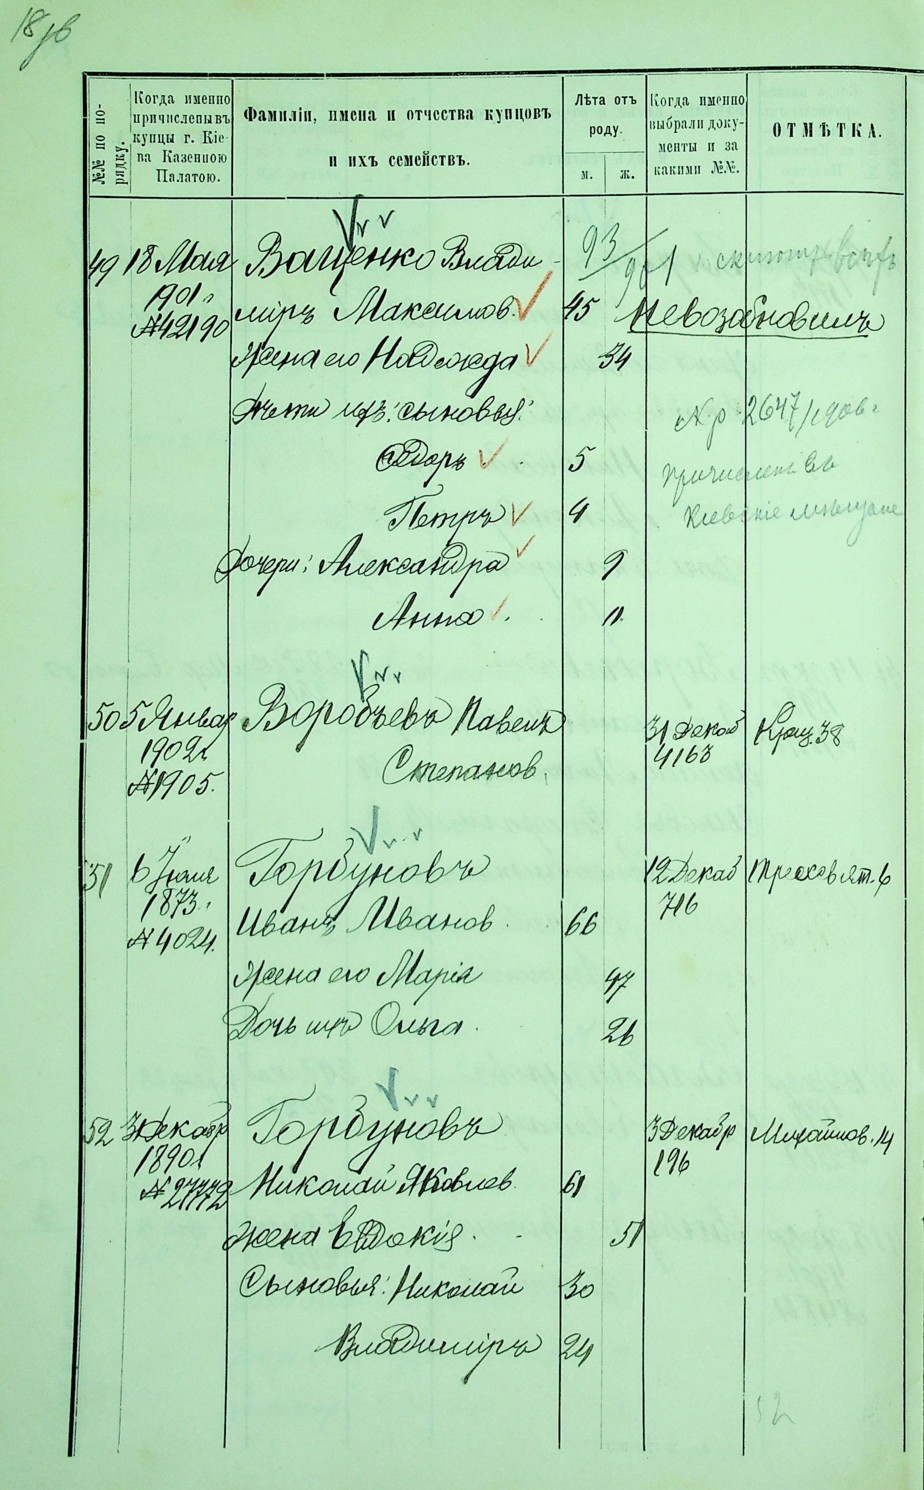 №№ по по-
рядку.
Когда именно
причислены въ
купцы г. Кіе-
ва Казенною
Палатою.
Фамиліи, имена и отчества купцовъ
и ихъ семействъ.
Лѣта отъ
роду.
м.
ж.
Когда именно
выбрали доку-
менты и за
какими №№.
ОТМѢТКА.
49 18 Мая Ващенко Влади-
1901 г. міръ Максимов. 45 Невозобновилъ
№ 42190
Жена его Надежда 34
Дѣти ихъ: сыновья: № 2647
Ѳедоръ 5 причислені въ
Петръ 4 Кіевскіе мѣщане
Дочери: Александра 9
Анна. 11.
50 5 Январ Воробьевъ Павелъ 31 Декаб Крещ. 38
1902 г. Степанов. 4163
№ 1905.
51 6 Іюля Горбуновъ 12 Декаб Трехсвят. 6
1873 г. Иванъ Иванов. 66 716
№ 4024.
Жена его Марія 47
Дочь ихъ Ольга. 26
52 3 Декабр Горбуновъ 3 Декабр Михайлов. 14
1890 г. Николай Яковлев. 61 196
№ 27772
Жена Евдокія 51
Сыновья: Николай 30
Владиміръ 24
52